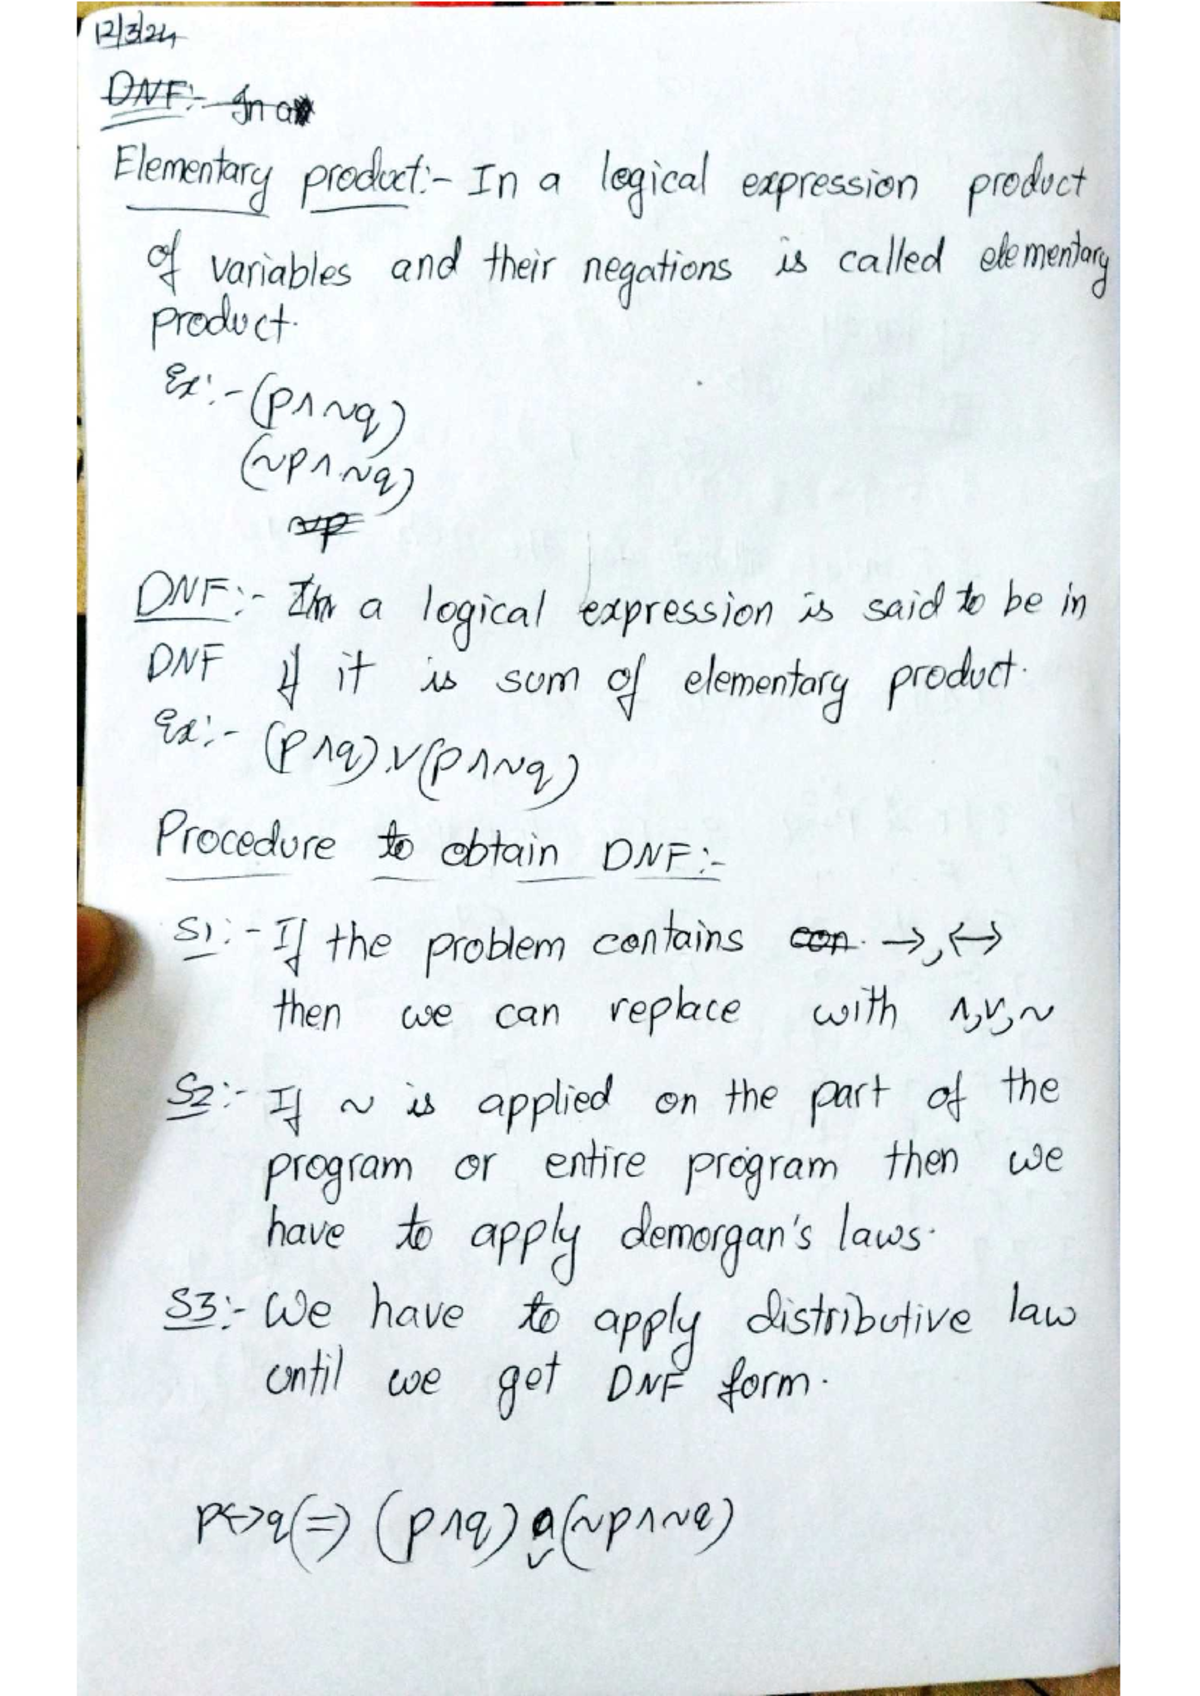 12/3/24
DNF:- In a
Elementary product:- In a logical expression product
of variables and their negations is called elementary
product.
Ex:- (p∧~q)
(~p∧~q)
~p
DNF:- In a logical expression is said to be in
DNF if it is sum of elementary product.
Ex:- (p∧q)∨(p∧~q)
Procedure to obtain DNF:-
S1:- If the problem contains con. →,↔
then we can replace with ∧,∨,~
S2:- If ~ is applied on the part of the
program or entire program then we
have to apply demorgan's laws.
S3:- We have to apply distributive law
until we get DNF form.
p↔q(=) (p∧q) ∨ (~p∧~q)